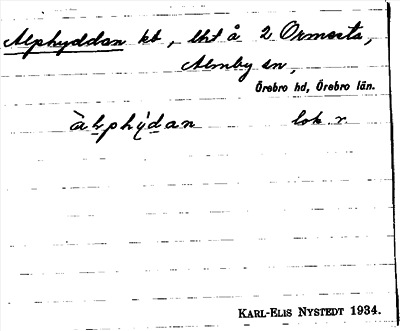 Alphyddan kt, lht å 2 Ormesta,
Almby sn,
Örebro hd, Örebro län.
àlphý̀dan lok r
KARL-ELIS NYSTEDT 1934.